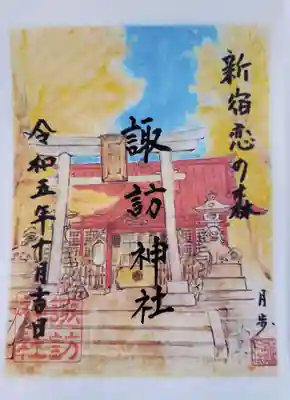 新宿恋の森
諏訪神社
令和五年十月吉日
月歩
諏訪